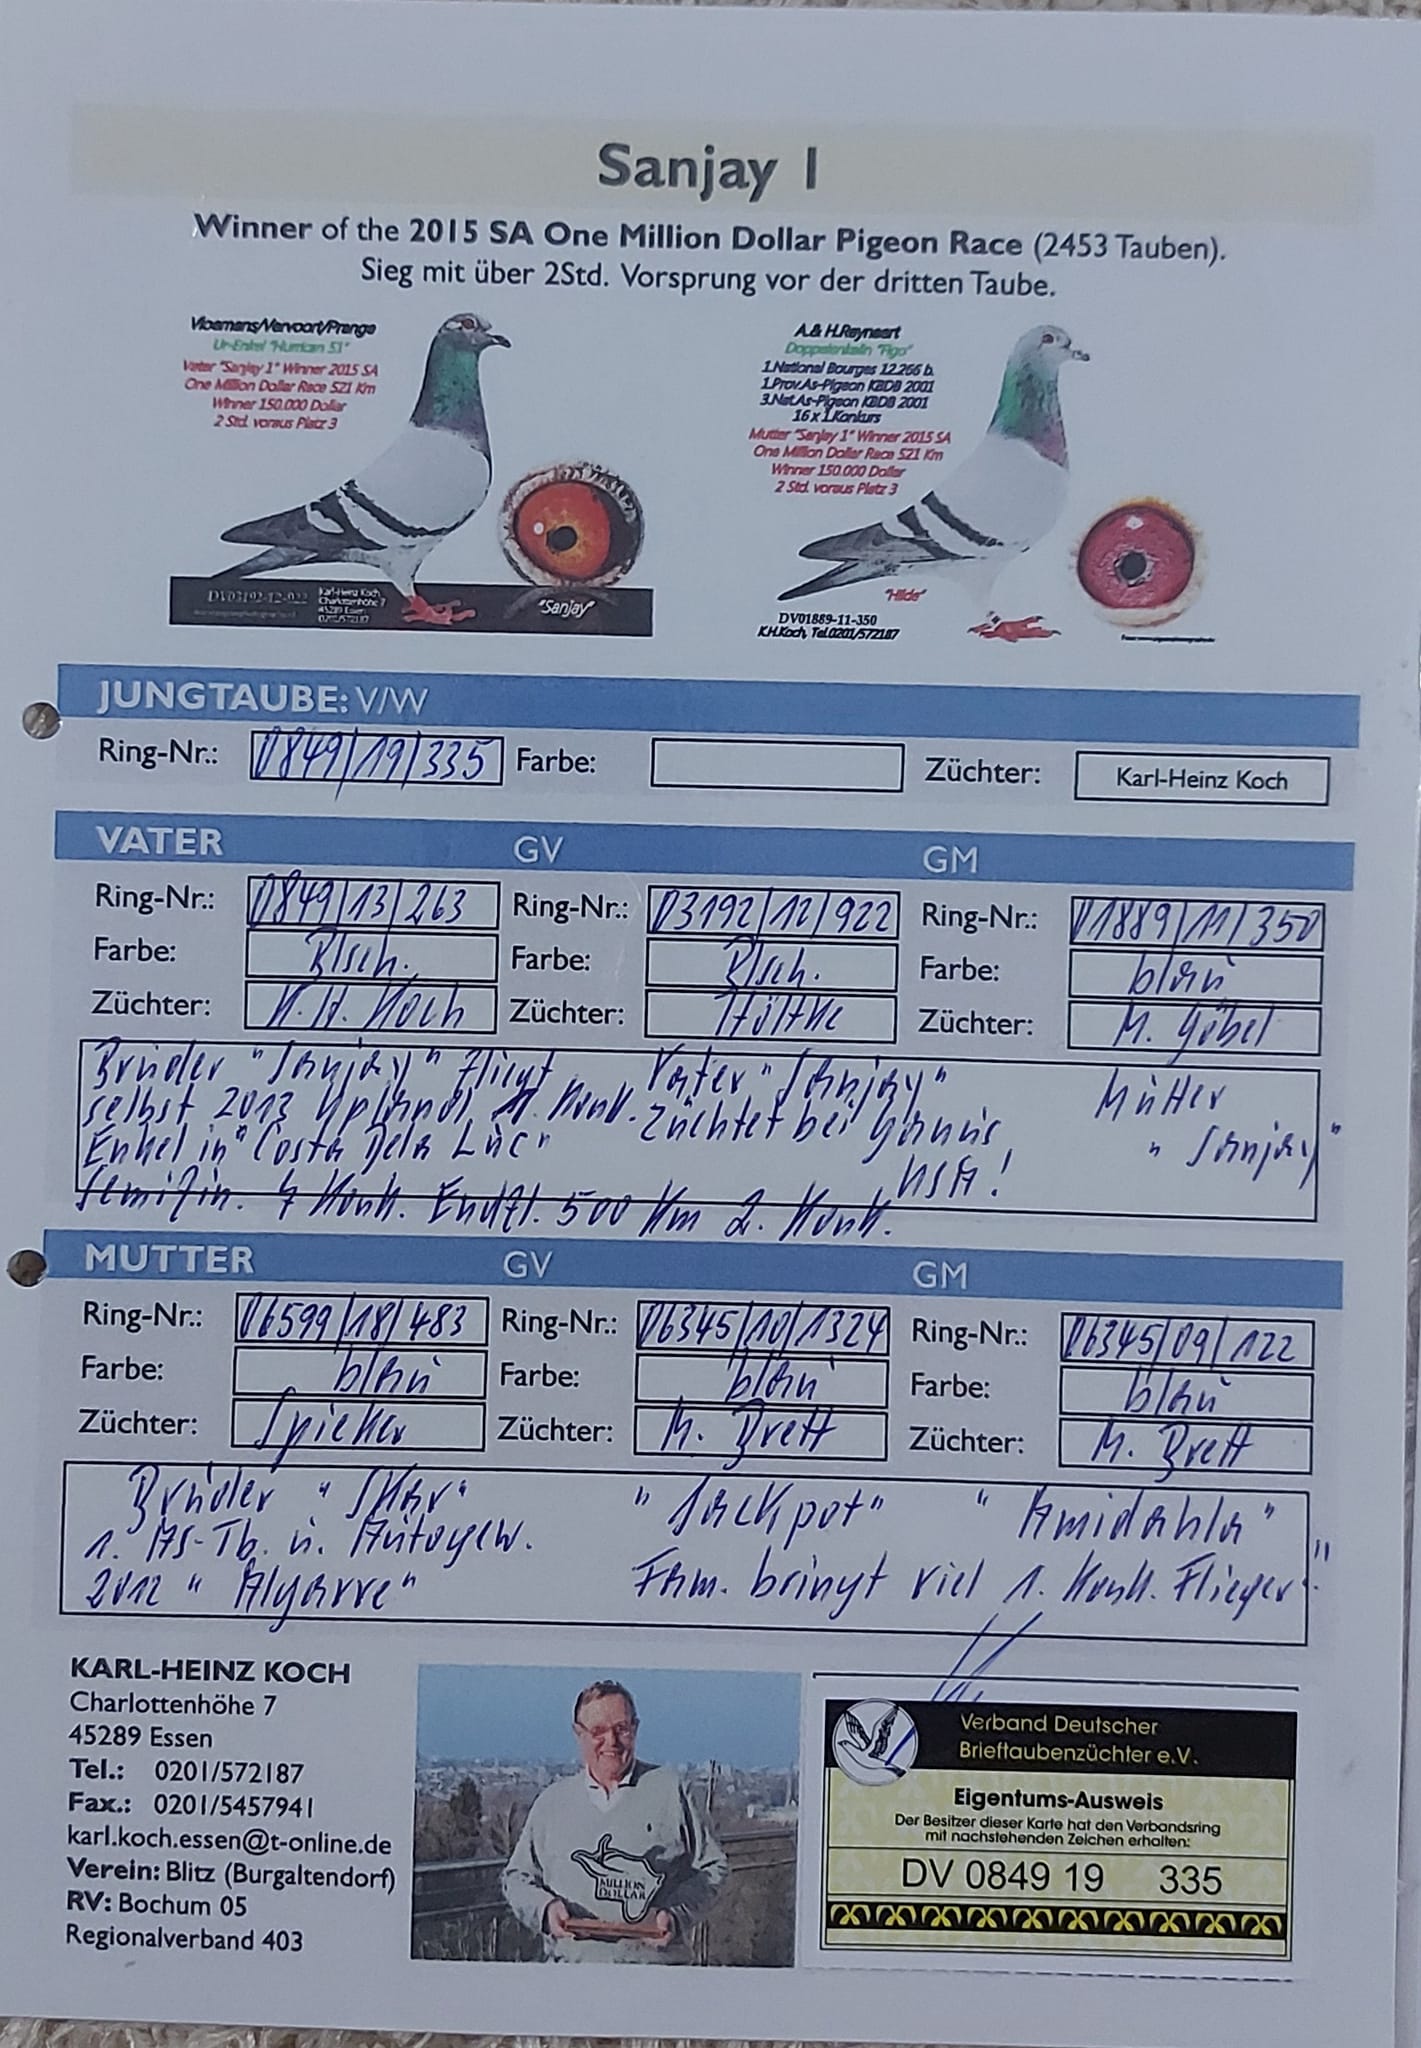 Sanjay 1
Winner of the 2015 SA One Million Dollar Pigeon Race (2453 Tauben).
Sieg mit über 2Std. Vorsprung vor der dritten Taube.
Vloemans/Vervoort/Prange
Ur-Enkel "Hurrican 51"
Vater "Sanjay 1" Winner 2015 SA
One Million Dollar Race 521 Km
Winner 150.000 Dollar
2 Std. voraus Platz 3
DV03192-12-922
Karl-Heinz Koch
Charlottenhöhe 7
45289 Essen
0201/572187
"Sanjay"
A.& H.Reynaert
Doppelenkelin "Figo"
1.National Bourges 12.266 b.
1.Prov.As-Pigeon KBDB 2001
3.Nat.As-Pigeon KBDB 2001
16 x 1.Konkurs
Mutter "Sanjay 1" Winner 2015 SA
One Million Dollar Race 521 Km
Winner 150.000 Dollar
2 Std. voraus Platz 3
"Hilde"
DV01889-11-350
K.H.Koch, Tel.0201/572187
JUNGTAUBE: V/W
Ring-Nr.: 0849/19/335 Farbe: Züchter: Karl-Heinz Koch
VATER GV GM
Ring-Nr.: 0849/13/263 Ring-Nr.: 03192/12/922 Ring-Nr.: 01889/11/350
Farbe: Blsch. Farbe: Blsch. Farbe: blau
Züchter: K.H. Koch Züchter: Züchter: M. Göbel
Bruder "Sanjay" fliegt Vater "Sanjay" Mutter
selbst 2013 Konk. züchtet bei "Sanjay"
Enkel in "Costa Dela Luc" USA!
Semifin. 4 Konk. Endfl. 500 Km 2. Konk.
MUTTER GV GM
Ring-Nr.: 06599/18/483 Ring-Nr.: 06345/10/1324 Ring-Nr.: 06345/09/122
Farbe: blau Farbe: blau Farbe: blau
Züchter: Spieker Züchter: M. Brett Züchter: M. Brett
Bruder "Skar" "Jackpot" "Amidahla"
1. As-Tb. u. Autogew. Fam. bringt viel 1. Konk. Flieger."
2012 "Algarve"
KARL-HEINZ KOCH
Charlottenhöhe 7
45289 Essen
Tel.: 0201/572187
Fax.: 0201/5457941
karl.koch.essen@t-online.de
Verein: Blitz (Burgaltendorf)
RV: Bochum 05
Regionalverband 403
MILLION
DOLLAR
Verband Deutscher
Brieftaubenzüchter e.V.
Eigentums-Ausweis
Der Besitzer dieser Karte hat den Verbandsring
mit nachstehenden Zeichen erhalten:
DV 0849 19 335